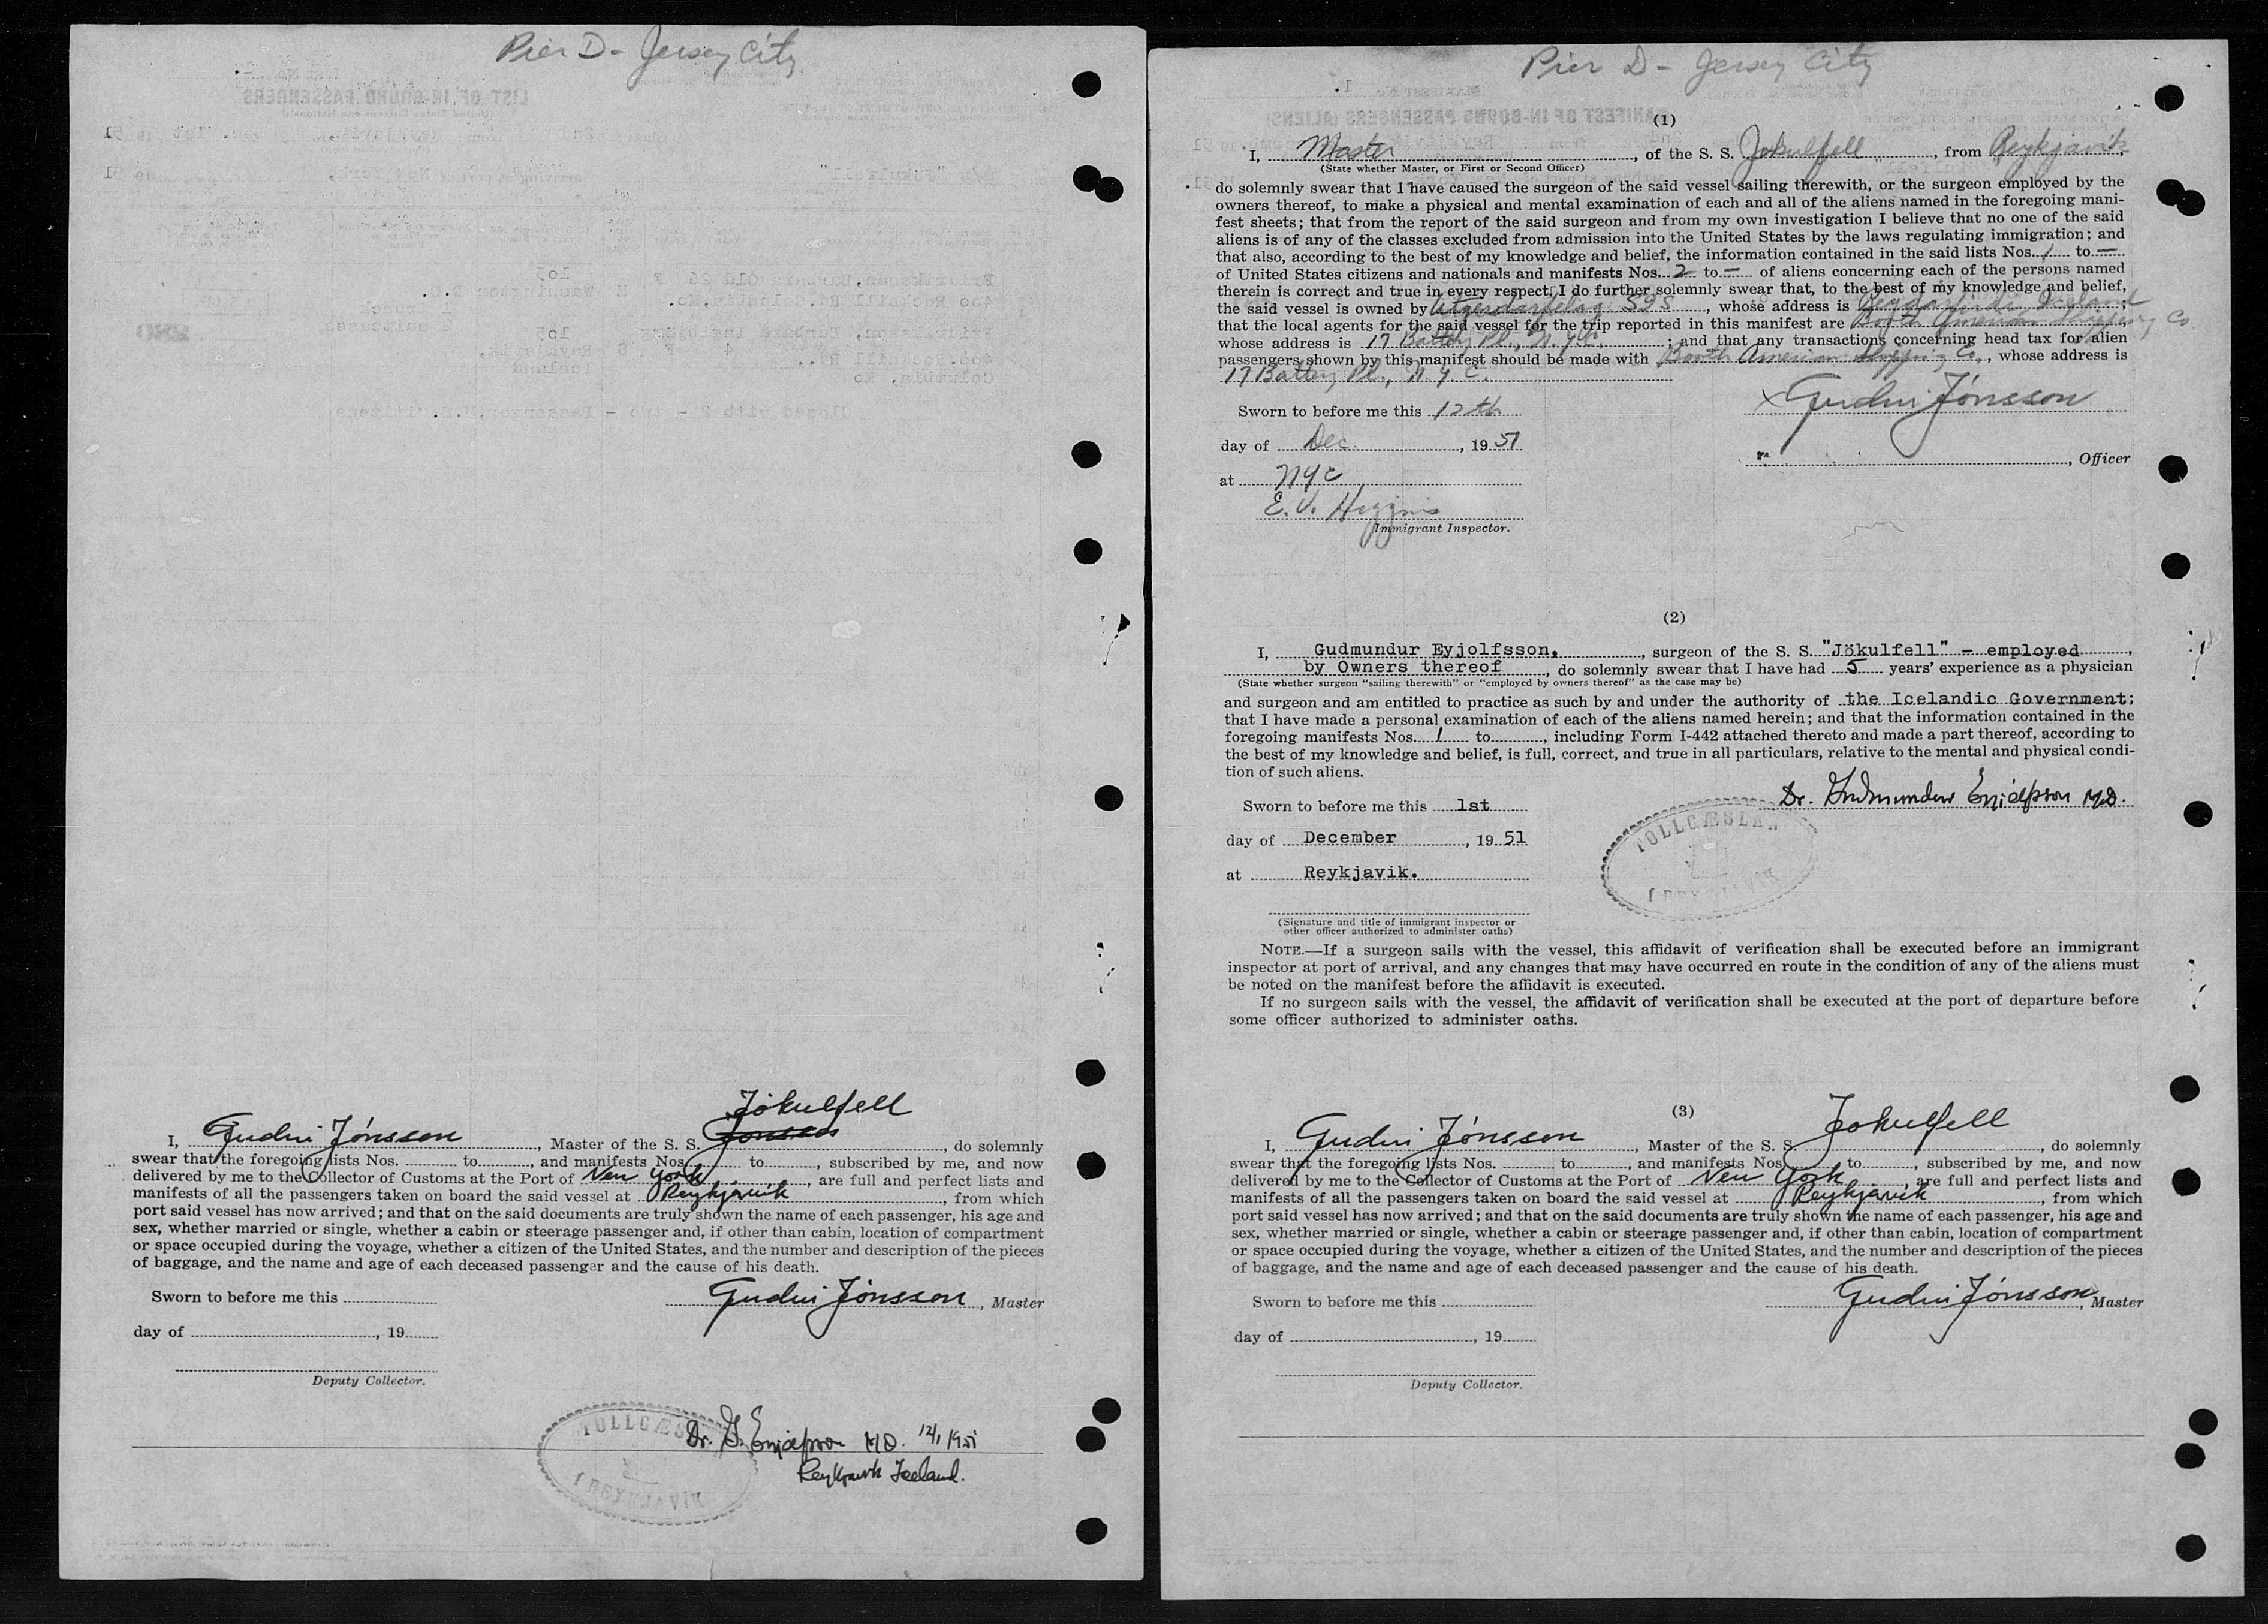 Pier D - Jersey City
I, Gudni Jónsson, Master of the S. S. Jökulfell Jonsson, do solemnly
swear that the foregoing lists Nos. to, and manifests Nos. to, subscribed by me, and now
delivered by me to the Collector of Customs at the Port of New York, are full and perfect lists and
manifests of all the passengers taken on board the said vessel at Reykjavik, from which
port said vessel has now arrived; and that on the said documents are truly shown the name of each passenger, his age and
sex, whether married or single, whether a cabin or steerage passenger and, if other than cabin, location of compartment
or space occupied during the voyage, whether a citizen of the United States, and the number and description of the pieces
of baggage, and the name and age of each deceased passenger and the cause of his death.
Sworn to before me this
Gudni Jónsson, Master
day of , 19
Deputy Collector.
TOLLGÆSLAN
Í REYKJAVÍK
Dr. G. Eyjolfsson MD. 12/1 1951
Reykjavik Iceland.
Pier D - Jersey City
(1)
I, Master, of the S. S. Jokulfell, from Reykjavik,
(State whether Master, or First or Second Officer)
do solemnly swear that I have caused the surgeon of the said vessel sailing therewith, or the surgeon employed by the
owners thereof, to make a physical and mental examination of each and all of the aliens named in the foregoing mani-
fest sheets; that from the report of the said surgeon and from my own investigation I believe that no one of the said
aliens is of any of the classes excluded from admission into the United States by the laws regulating immigration; and
that also, according to the best of my knowledge and belief, the information contained in the said lists Nos. 1 to —
of United States citizens and nationals and manifests Nos. 2 to — of aliens concerning each of the persons named
therein is correct and true in every respect. I do further solemnly swear that, to the best of my knowledge and belief,
the said vessel is owned by SIS, whose address is Iceland;
that the local agents for the said vessel for the trip reported in this manifest are Booth American Shipping Co
whose address is 17 Battery Pl., N.Y.C.; and that any transactions concerning head tax for alien
passengers shown by this manifest should be made with Booth American Shipping Co., whose address is
17 Battery Pl., N Y C.
Sworn to before me this 12th
X Gudni Jónsson
day of Dec., 19 51
, Officer
at NYC
E. V. Higgins
Immigrant Inspector.
(2)
I, Gudmundur Eyjolfsson, surgeon of the S. S. "Jökulfell" - employed,
by Owners thereof, do solemnly swear that I have had 5 years' experience as a physician
(State whether surgeon "sailing therewith" or "employed by owners thereof" as the case may be)
and surgeon and am entitled to practice as such by and under the authority of the Icelandic Government;
that I have made a personal examination of each of the aliens named herein; and that the information contained in the
foregoing manifests Nos. 1 to, including Form I-442 attached thereto and made a part thereof, according to
the best of my knowledge and belief, is full, correct, and true in all particulars, relative to the mental and physical condi-
tion of such aliens.
Dr. Gudmundur Eyjolfsson MD.
Sworn to before me this 1st
TOLLGÆSLAN
Í REYKJAVÍK
day of December, 19 51
at Reykjavik.
(Signature and title of immigrant inspector or
other officer authorized to administer oaths)
NOTE.—If a surgeon sails with the vessel, this affidavit of verification shall be executed before an immigrant
inspector at port of arrival, and any changes that may have occurred en route in the condition of any of the aliens must
be noted on the manifest before the affidavit is executed.
If no surgeon sails with the vessel, the affidavit of verification shall be executed at the port of departure before
some officer authorized to administer oaths.
(3)
I, Gudni Jónsson, Master of the S. S. Jokulfell, do solemnly
swear that the foregoing lists Nos. to, and manifests Nos. to, subscribed by me, and now
delivered by me to the Collector of Customs at the Port of New York, are full and perfect lists and
manifests of all the passengers taken on board the said vessel at Reykjavik, from which
port said vessel has now arrived; and that on the said documents are truly shown the name of each passenger, his age and
sex, whether married or single, whether a cabin or steerage passenger and, if other than cabin, location of compartment
or space occupied during the voyage, whether a citizen of the United States, and the number and description of the pieces
of baggage, and the name and age of each deceased passenger and the cause of his death.
Sworn to before me this
Gudni Jónsson, Master
day of , 19
Deputy Collector.